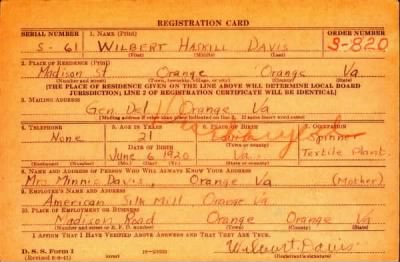 REGISTRATION CARD
SERIAL NUMBER 1. NAME (Print) ORDER NUMBER
S-61 WILBERT HASKILL DAVIS S-820
(First) (Middle) (Last)
2. PLACE OF RESIDENCE (Print)
Madison St Orange Orange Va
(Number and street) (Town, township, village, or city) (County) (State)
[THE PLACE OF RESIDENCE GIVEN ON THE LINE ABOVE WILL DETERMINE LOCAL BOARD
JURISDICTION; LINE 2 OF REGISTRATION CERTIFICATE WILL BE IDENTICAL]
3. MAILING ADDRESS
Gen Del Orange Va
[Mailing address if other than place indicated on line 2. If same insert word same]
4. TELEPHONE 5. AGE IN YEARS 6. PLACE OF BIRTH 7. OCCUPATION
None 21 Spinner
DATE OF BIRTH
June 6 1920 Va Textile Plant
(Exchange) (Number) (Mo.) (Day) (Yr.) (State or country)
8. NAME AND ADDRESS OF PERSON WHO WILL ALWAYS KNOW YOUR ADDRESS
Mrs Minnie Davis, Orange Va (Mother)
9. EMPLOYER'S NAME AND ADDRESS
American Silk Mill, Orange Va
10. PLACE OF EMPLOYMENT OR BUSINESS
Madison Road Orange Orange Va
(Number and street or R. F. D. number) (Town) (County) (State)
I AFFIRM THAT I HAVE VERIFIED ABOVE ANSWERS AND THAT THEY ARE TRUE.
D. S. S. Form 1
(Revised 6-9-41) (over)
Wilbert Davis
(Registrant's signature)